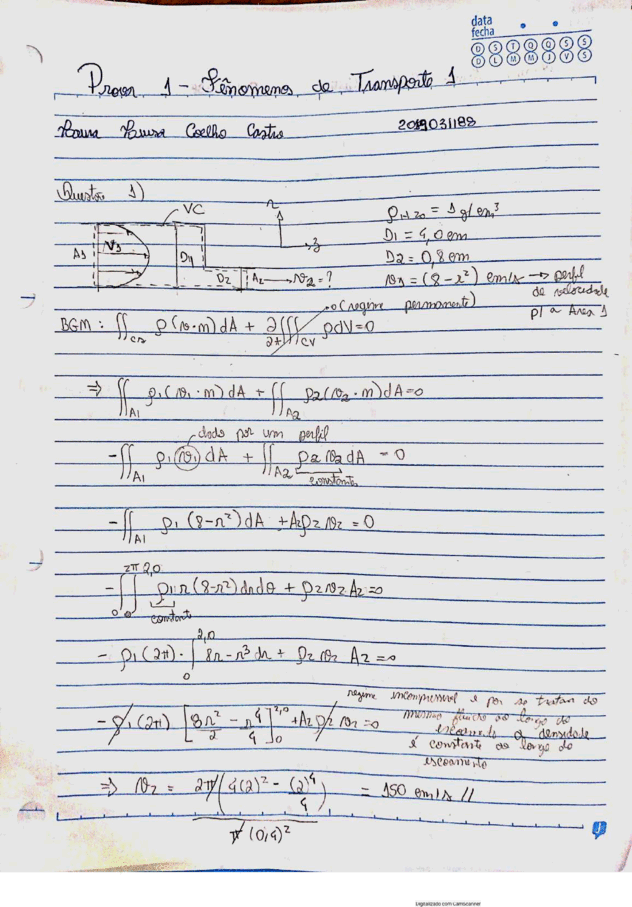 data
fecha
D S T Q Q S S
D L M M J V S
Prova 1 - Fenômenos de Transporte 1
Coelho Castro 2019031188
Questão 1)
VC
r
z
A1 V1 D1 D2 A2 → v2 = ?
ρH2O = 1 g/cm³
D1 = 4,0 cm
D2 = 0,8 cm
v1 = (8 - r²) cm/s → perfil
de velocidade
p/ a Área 1
0 (regime permanente)
BGM: ∬CS ρ(v·n)dA + ∂/∂t ∭CV ρdV = 0
⇒ ∬A1 ρ1(v1·n)dA + ∬A2 ρ2(v2·n)dA = 0
dado por um perfil
- ∬A1 ρ1(v1)dA + ∬A2 ρ2 v2 dA = 0
constante
- ∬A1 ρ1(8-r²)dA + A2ρ2v2 = 0
- ∫0^2π ∫0^2,0 ρ1 r(8-r²)drdθ + ρ2v2A2 = 0
constante
- ρ1(2π)·∫0^2,0 8r - r³ dr + ρ2v2 A2 = 0
regime incompressível e por se tratar do
mesmo fluido ao longo do
escoamento a densidade
é constante ao longo do
escoamento
- ρ1(2π) [8r²/2 - r⁴/4]0^2,0 + A2ρ2v2 = 0
⇒ v2 = 2π(4(2)² - (2)⁴/4) / π(0,4)² = 150 cm/s //
Digitalizado com CamScanner